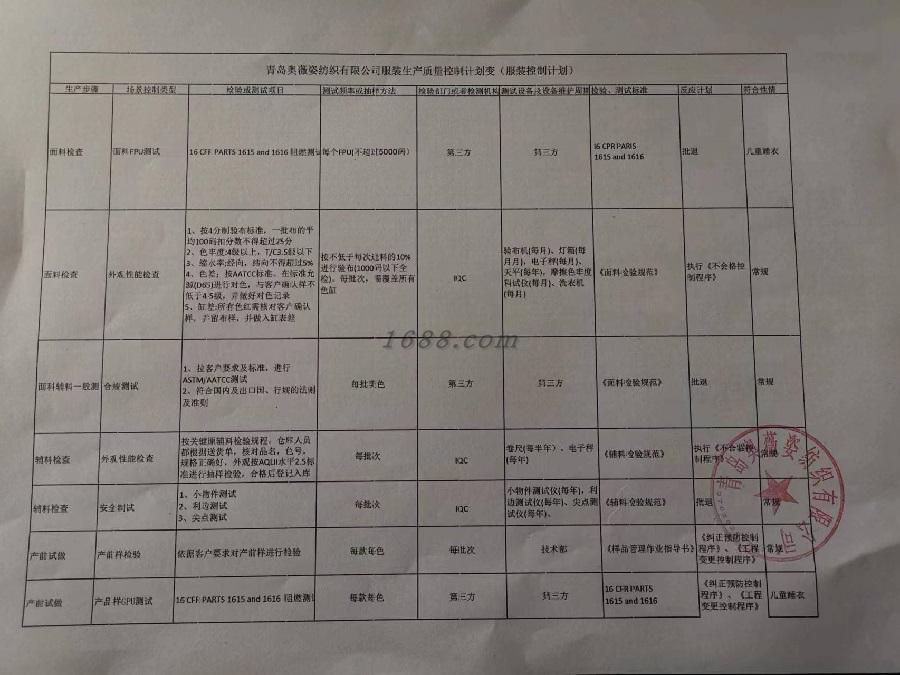 青岛奥薇姿纺织有限公司服装生产质量控制计划变（服装控制计划）
生产步骤 场景控制类型 检验或测试项目 测试频率或抽样方法 检验部门或者检测机构 测试设备及设备维护周期 检验、测试标准 反应计划 符合性情
面料检查 面料FPU测试 16 CFF PARTS 1615 and 1616 阻燃测试 每个FPU(不超过5000码) 第三方 第三方 16 CPR PARIS
1615 and 1616 批退 儿童睡衣
面料检查 外观性能检查
1、按4分制验布标准，一批布的平
均100码扣分数不得超过25分
2、色牢度:4级以上，T/C3.5级以下
3、缩水率:经向，纬向不得超过5%
4、色差；按AATCC标准。在标准光
源(D65)进行对色，与客户确认样不
低于4-5级，并做好对色记录
5、缸差:所有色缸需核对客户确认
样，并留布样，并做入缸表差
按不低于每次进料的10%
进行验布(1000码以下全
检)。每批次，需覆盖所有
色缸
IQC
验布机(每月)、灯箱(每
月月)，电子秤(每月)、
天平(每年)，摩擦色牢度
测试仪(每月)、洗衣机
(每月)
《面料检验规范》
执行《不合格控
制程序》
常规
面料辅料一般测 合规测试
1、按客户要求及标准，进行
ASTM/AATCC测试
2、符合国内及出口国、行规的法则
及准则
每批类色 第三方 第三方 《面料检验规范》 批退 常规
辅料检查 外观性能检查
按关键原辅料检验规程，仓库人员
都根据送货单，核对品名，色号，
规格正确好、外观按AQLII水平2.5标
准进行抽样检验，合格后登记入库
每批次 IQC
卷尺(每半年）、电子秤
(每年)
《辅料检验规范》
执行《不合格控
制程序》
常规
辅料检查 安全测试
1、小物件测试
2、利边测试
3、尖点测试
每批次 IQC
小物件测试仪(每年)，利
边测试仪(每年)、尖点测
试仪(每年)、
《辅料检验规范》 批退 常规
产前试做 产前样检验 依据客户要求对产前样进行检验 每款每色 每批次 技术部 《样品管理作业指导书》
《纠正预防控制
程序》、《工程
变更控制程序》
常规
产前试做 产品样GPU测试 16 CFR PARTS 1615 and 1616 阻燃测试 每款每色 第三方 第三方
16 CFR PARTS
1615 and 1616
《纠正预防控制
程序》、《工程
变更控制程序》
儿童睡衣
1688.com
青岛奥薇姿纺织有限公司